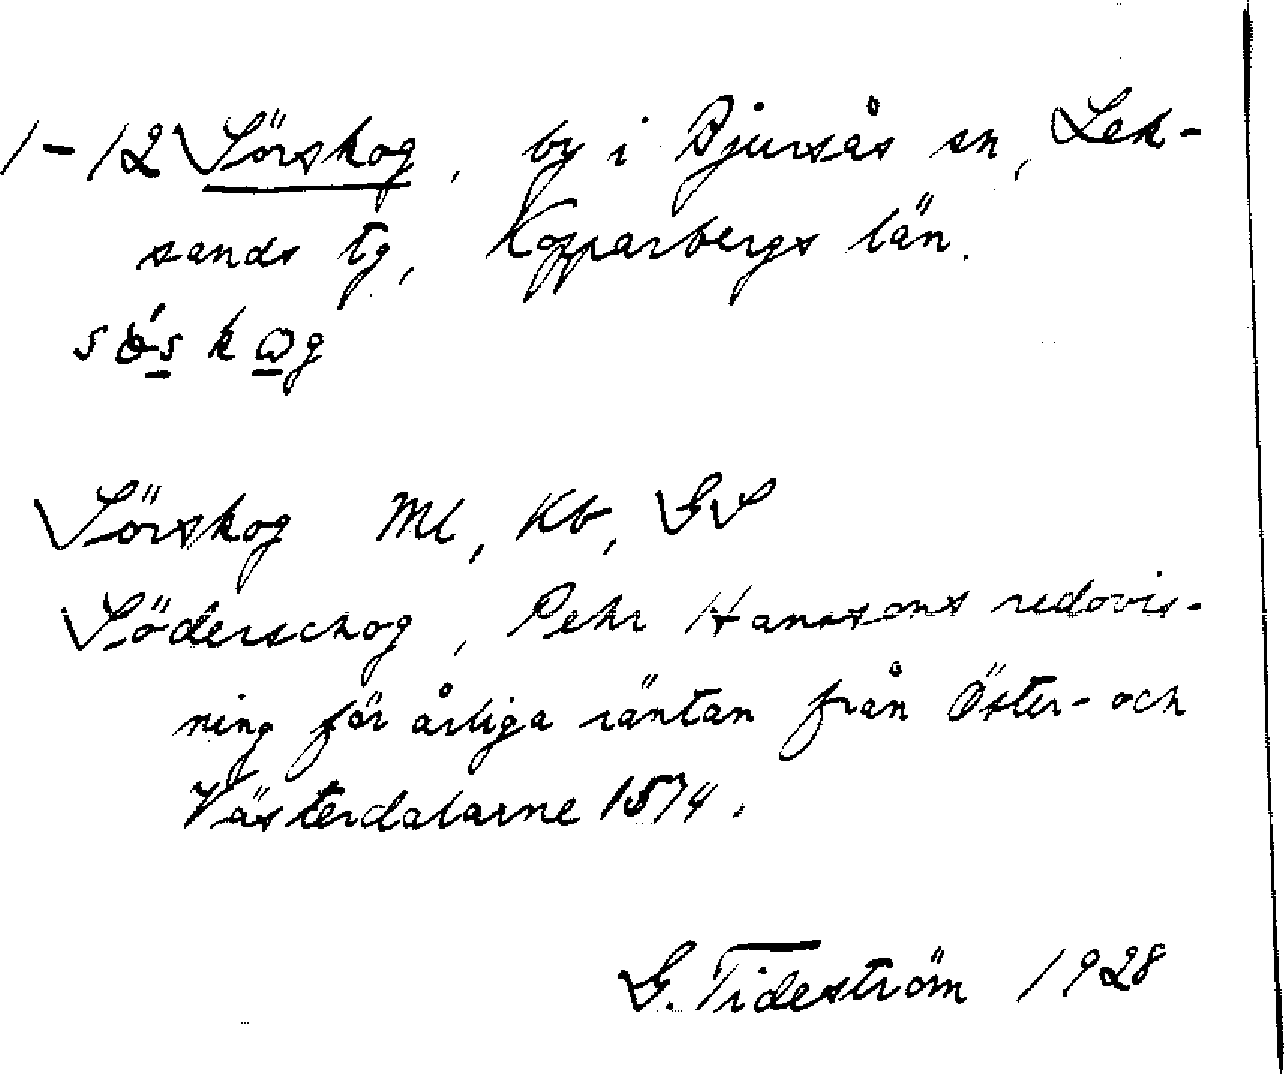 1-12 Sörskog, by i Bjursås sn, Lek-
sands tg, Kopparbergs län.
Sörskog Ml, Kb, GS
Söderschog, Pehr Hanssons redovis-
ning för årliga räntan från Öster- och
Västerdalarne 1574.
G. Tideström 1928